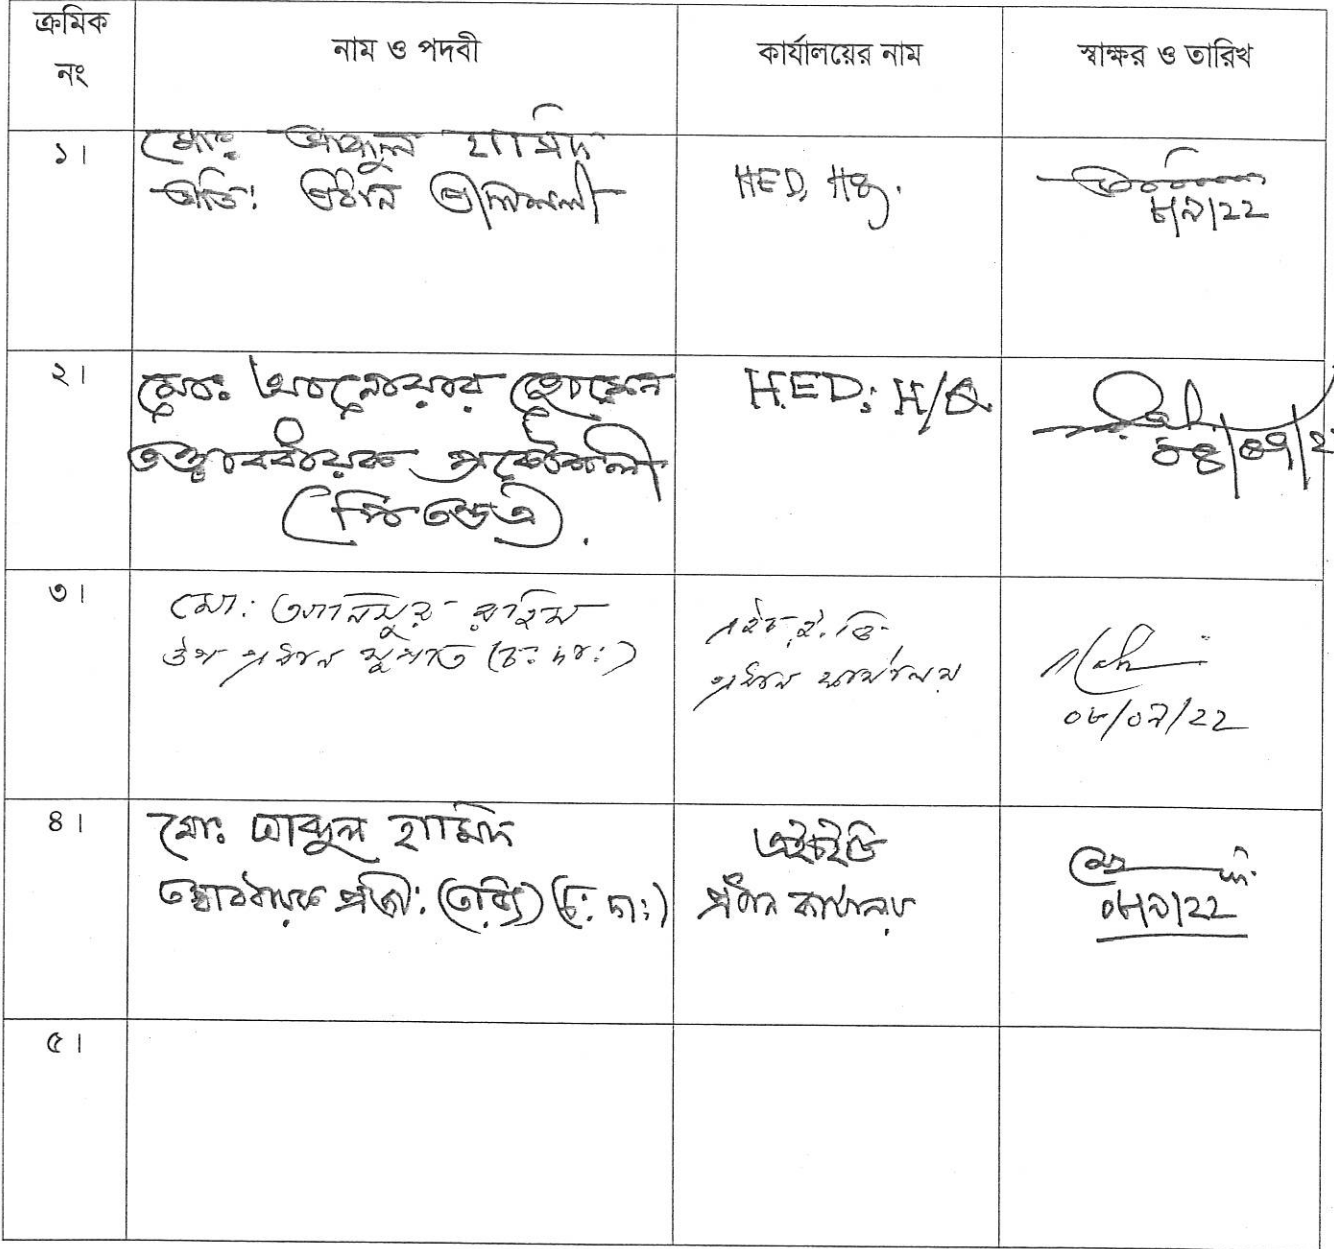 ক্রমিক
নং
নাম ও পদবী
কার্যালয়ের নাম
স্বাক্ষর ও তারিখ
১।
মোহাঃ আব্দুল হামিদ
অতি: প্রধান প্রকৌশলী
HED, HQ.
৮/৯/22
২।
মোঃ আনোয়ার হোসেন
তত্ত্বাবধায়ক প্রকৌশলী
H.E.D; H/Q
৩।
মো: রহিম
উপ প্রধান স্থপতি (চ: দা:)
এইচ.ই.ডি
প্রধান কার্যালয়
০৮/০৯/২২
৪।
মোঃ আব্দুল হামিদ
তত্ত্বাবধায়ক প্রকৌ: (চ: দা:)
এইচইডি
প্রধান কার্যালয়
০৮/৯/২২
৫।